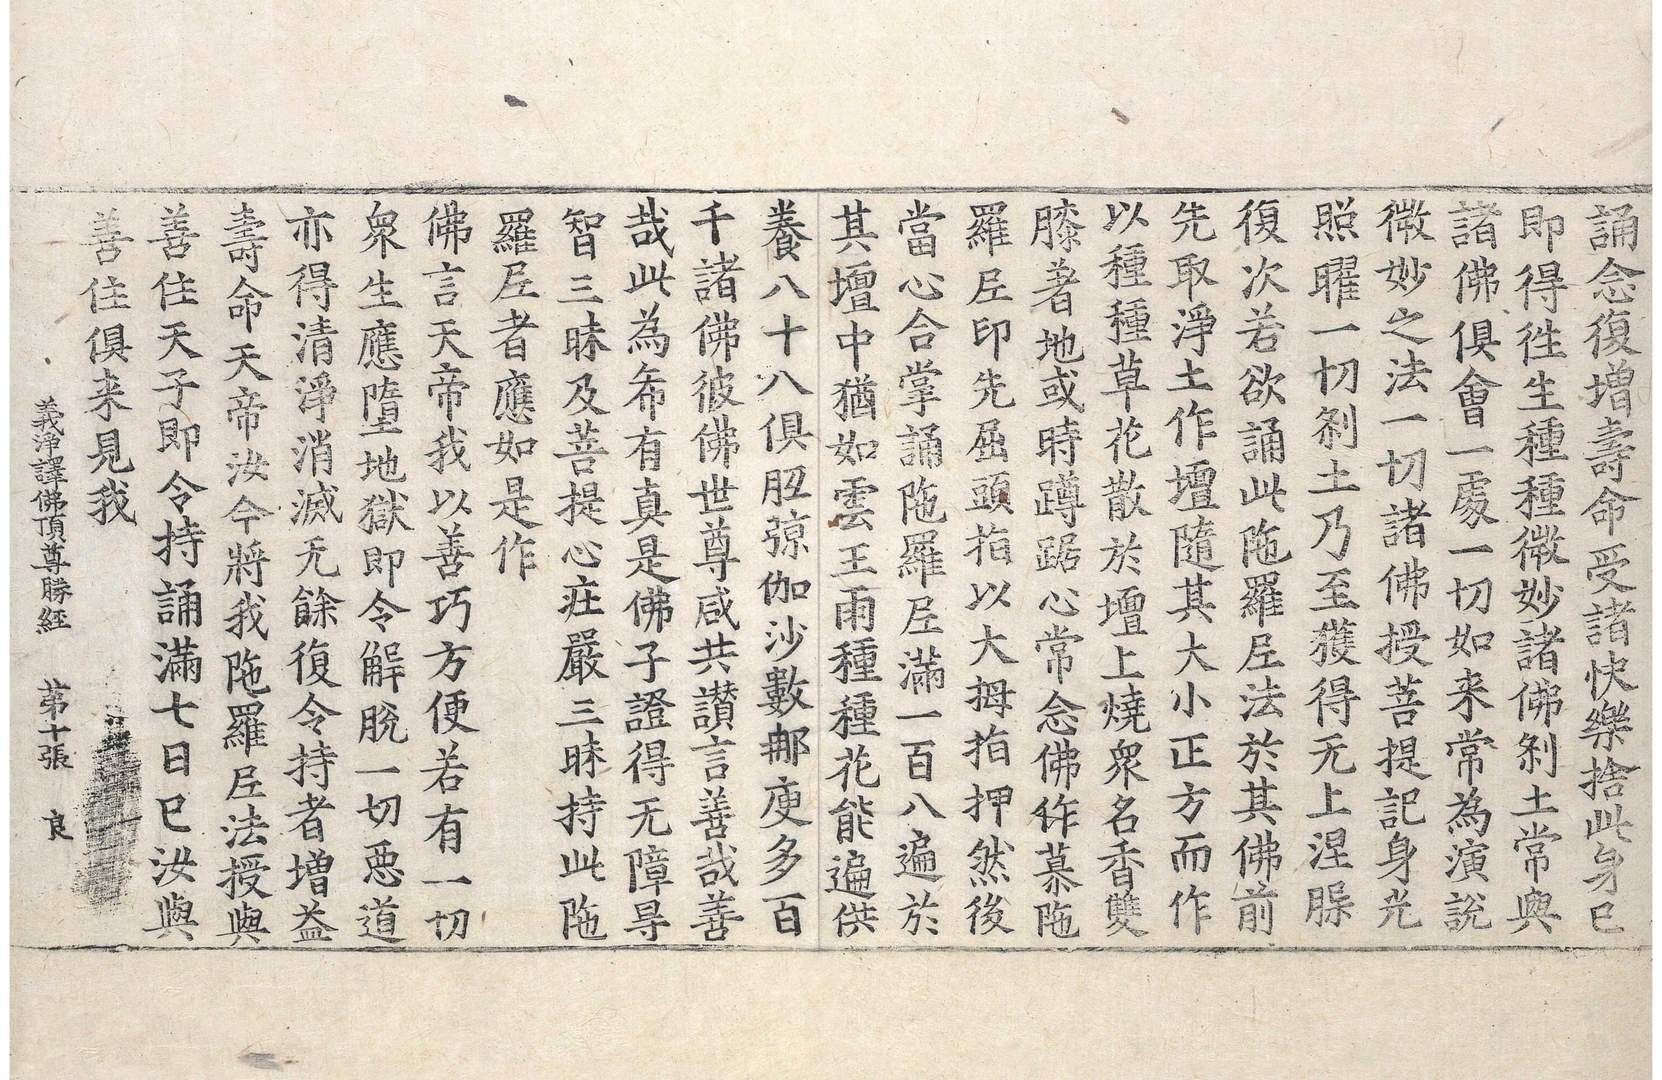 誦念復增壽命受諸快樂捨此身已
即得徃生種種微妙諸佛刹土常與
諸佛俱會一處一切如来常為演說
微妙之法一切諸佛授菩提記身光
照曜一切刹土乃至獲得无上涅槃
復次若欲誦此陁羅𡰱法於其佛前
先取淨土作壇隨其大小正方而作
以種種草花散於壇上燒衆名香雙
膝著地或時蹲踞心常念佛作慕陁
羅𡰱印先屈頭指以大拇指押然後
當心合掌誦陁羅𡰱滿一百八遍於
其壇中猶如雲王雨種種花能遍供
養八十八俱胝殑伽沙數𨚗庾多百
千諸佛彼佛世尊咸共讚言善哉善
哉此為希有真是佛子證得无障㝵
智三昧及菩提心莊嚴三昧持此陁
羅𡰱者應如是作
佛言天帝我以善巧方便若有一切
衆生應墮地獄即令解脫一切惡道
亦得清淨消滅无餘復令持者增益
壽命天帝汝今將我陁羅𡰱法授與
善住天子即令持誦滿七日已汝與
善住俱来見我
義淨譯佛頂尊勝經 苐十張 良